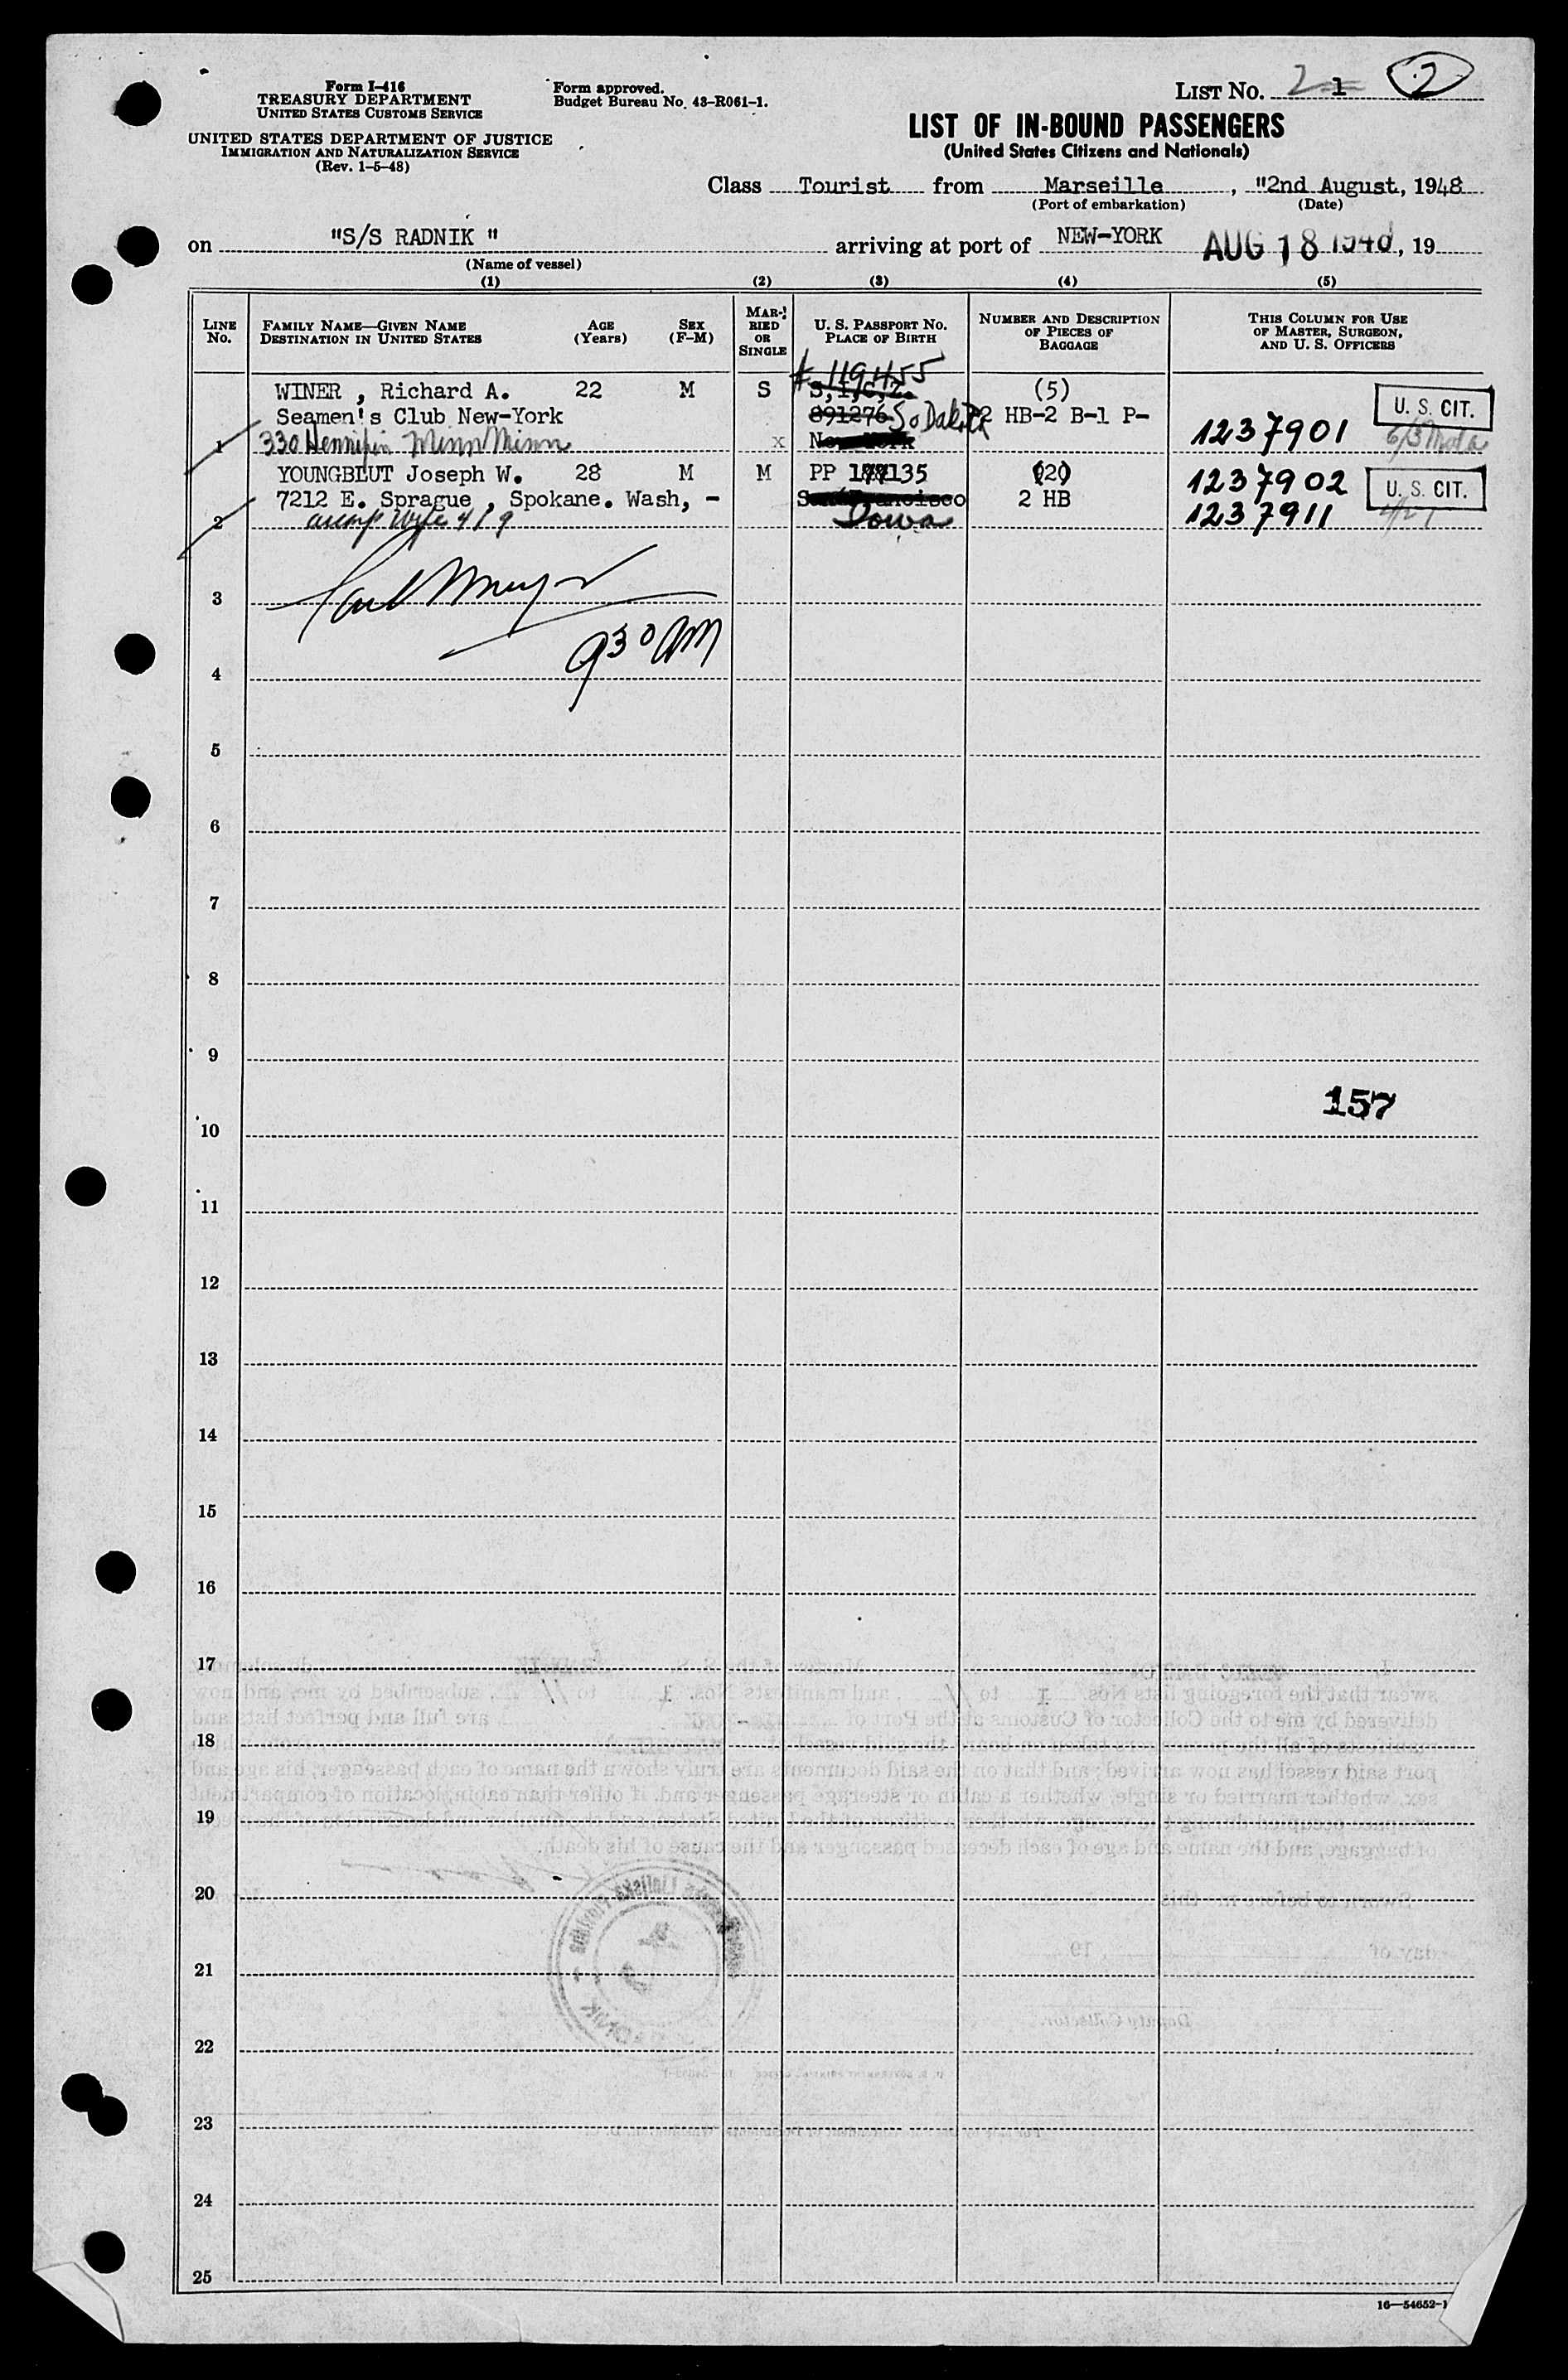 Form I-416
TREASURY DEPARTMENT
UNITED STATES CUSTOMS SERVICE
UNITED STATES DEPARTMENT OF JUSTICE
IMMIGRATION AND NATURALIZATION SERVICE
(Rev. 1-5-48)
Form approved.
Budget Bureau No. 43-R061-1.
LIST NO. 2 1 2
LIST OF IN-BOUND PASSENGERS
(United States Citizens and Nationals)
Class Tourist from Marseille , "2nd August, 1948
(Port of embarkation) (Date)
on "S/S RADNIK " arriving at port of NEW-YORK AUG 18 1948, 19
(Name of vessel)
(1) (2) (3) (4) (5)
LINE No. FAMILY NAME—GIVEN NAME DESTINATION IN UNITED STATES AGE (Years) SEX (F-M) MARRIED OR SINGLE U. S. PASSPORT NO. PLACE OF BIRTH NUMBER AND DESCRIPTION OF PIECES OF BAGGAGE THIS COLUMN FOR USE OF MASTER, SURGEON, AND U. S. OFFICERS
# 119455
WINER , Richard A. 22 M S S,I,C,Z. (5) U. S. CIT.
Seamen's Club New-York 891276 So Dakota 2 HB-2 B-1 P-
1 330 Hennipin Minn Minn x New York 1237901
YOUNGBLUT Joseph W. 28 M M PP 135 (20) 1237902 U. S. CIT.
7212 E. Sprague , Spokane. Wash, - San Francisco 2 HB
2 accomp wife 4/9 Iowa 1237911
3
930 AM
4
5
6
7
8
9
157
10
11
12
13
14
15
16
17
18
19
20
21
22
23
24
25
16—54652-1